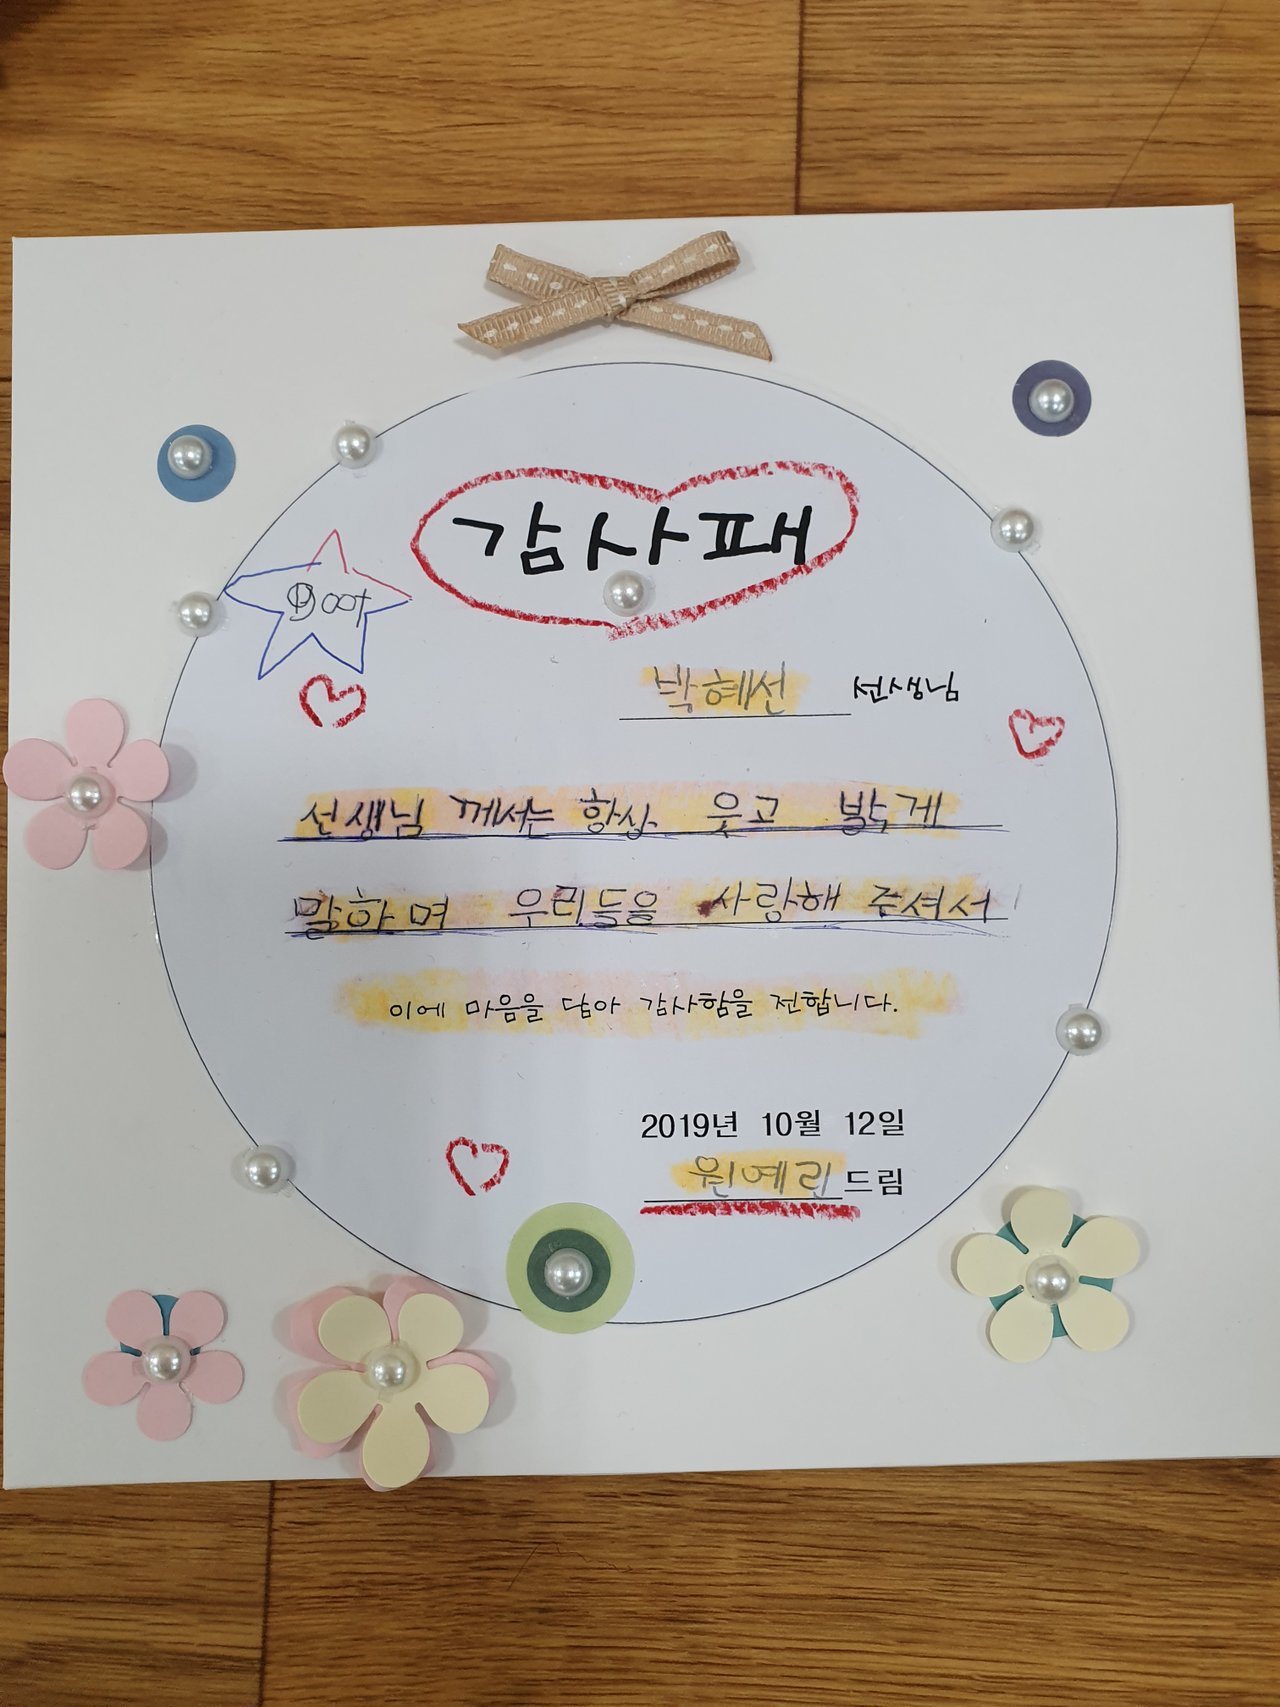 감사패
박혜선 선생님
선생님 께서는 항상 웃고 밝게
말하며 우리들을 사랑해 주셔서
이에 마음을 담아 감사함을 전합니다.
2019년 10월 12일
원예린 드림